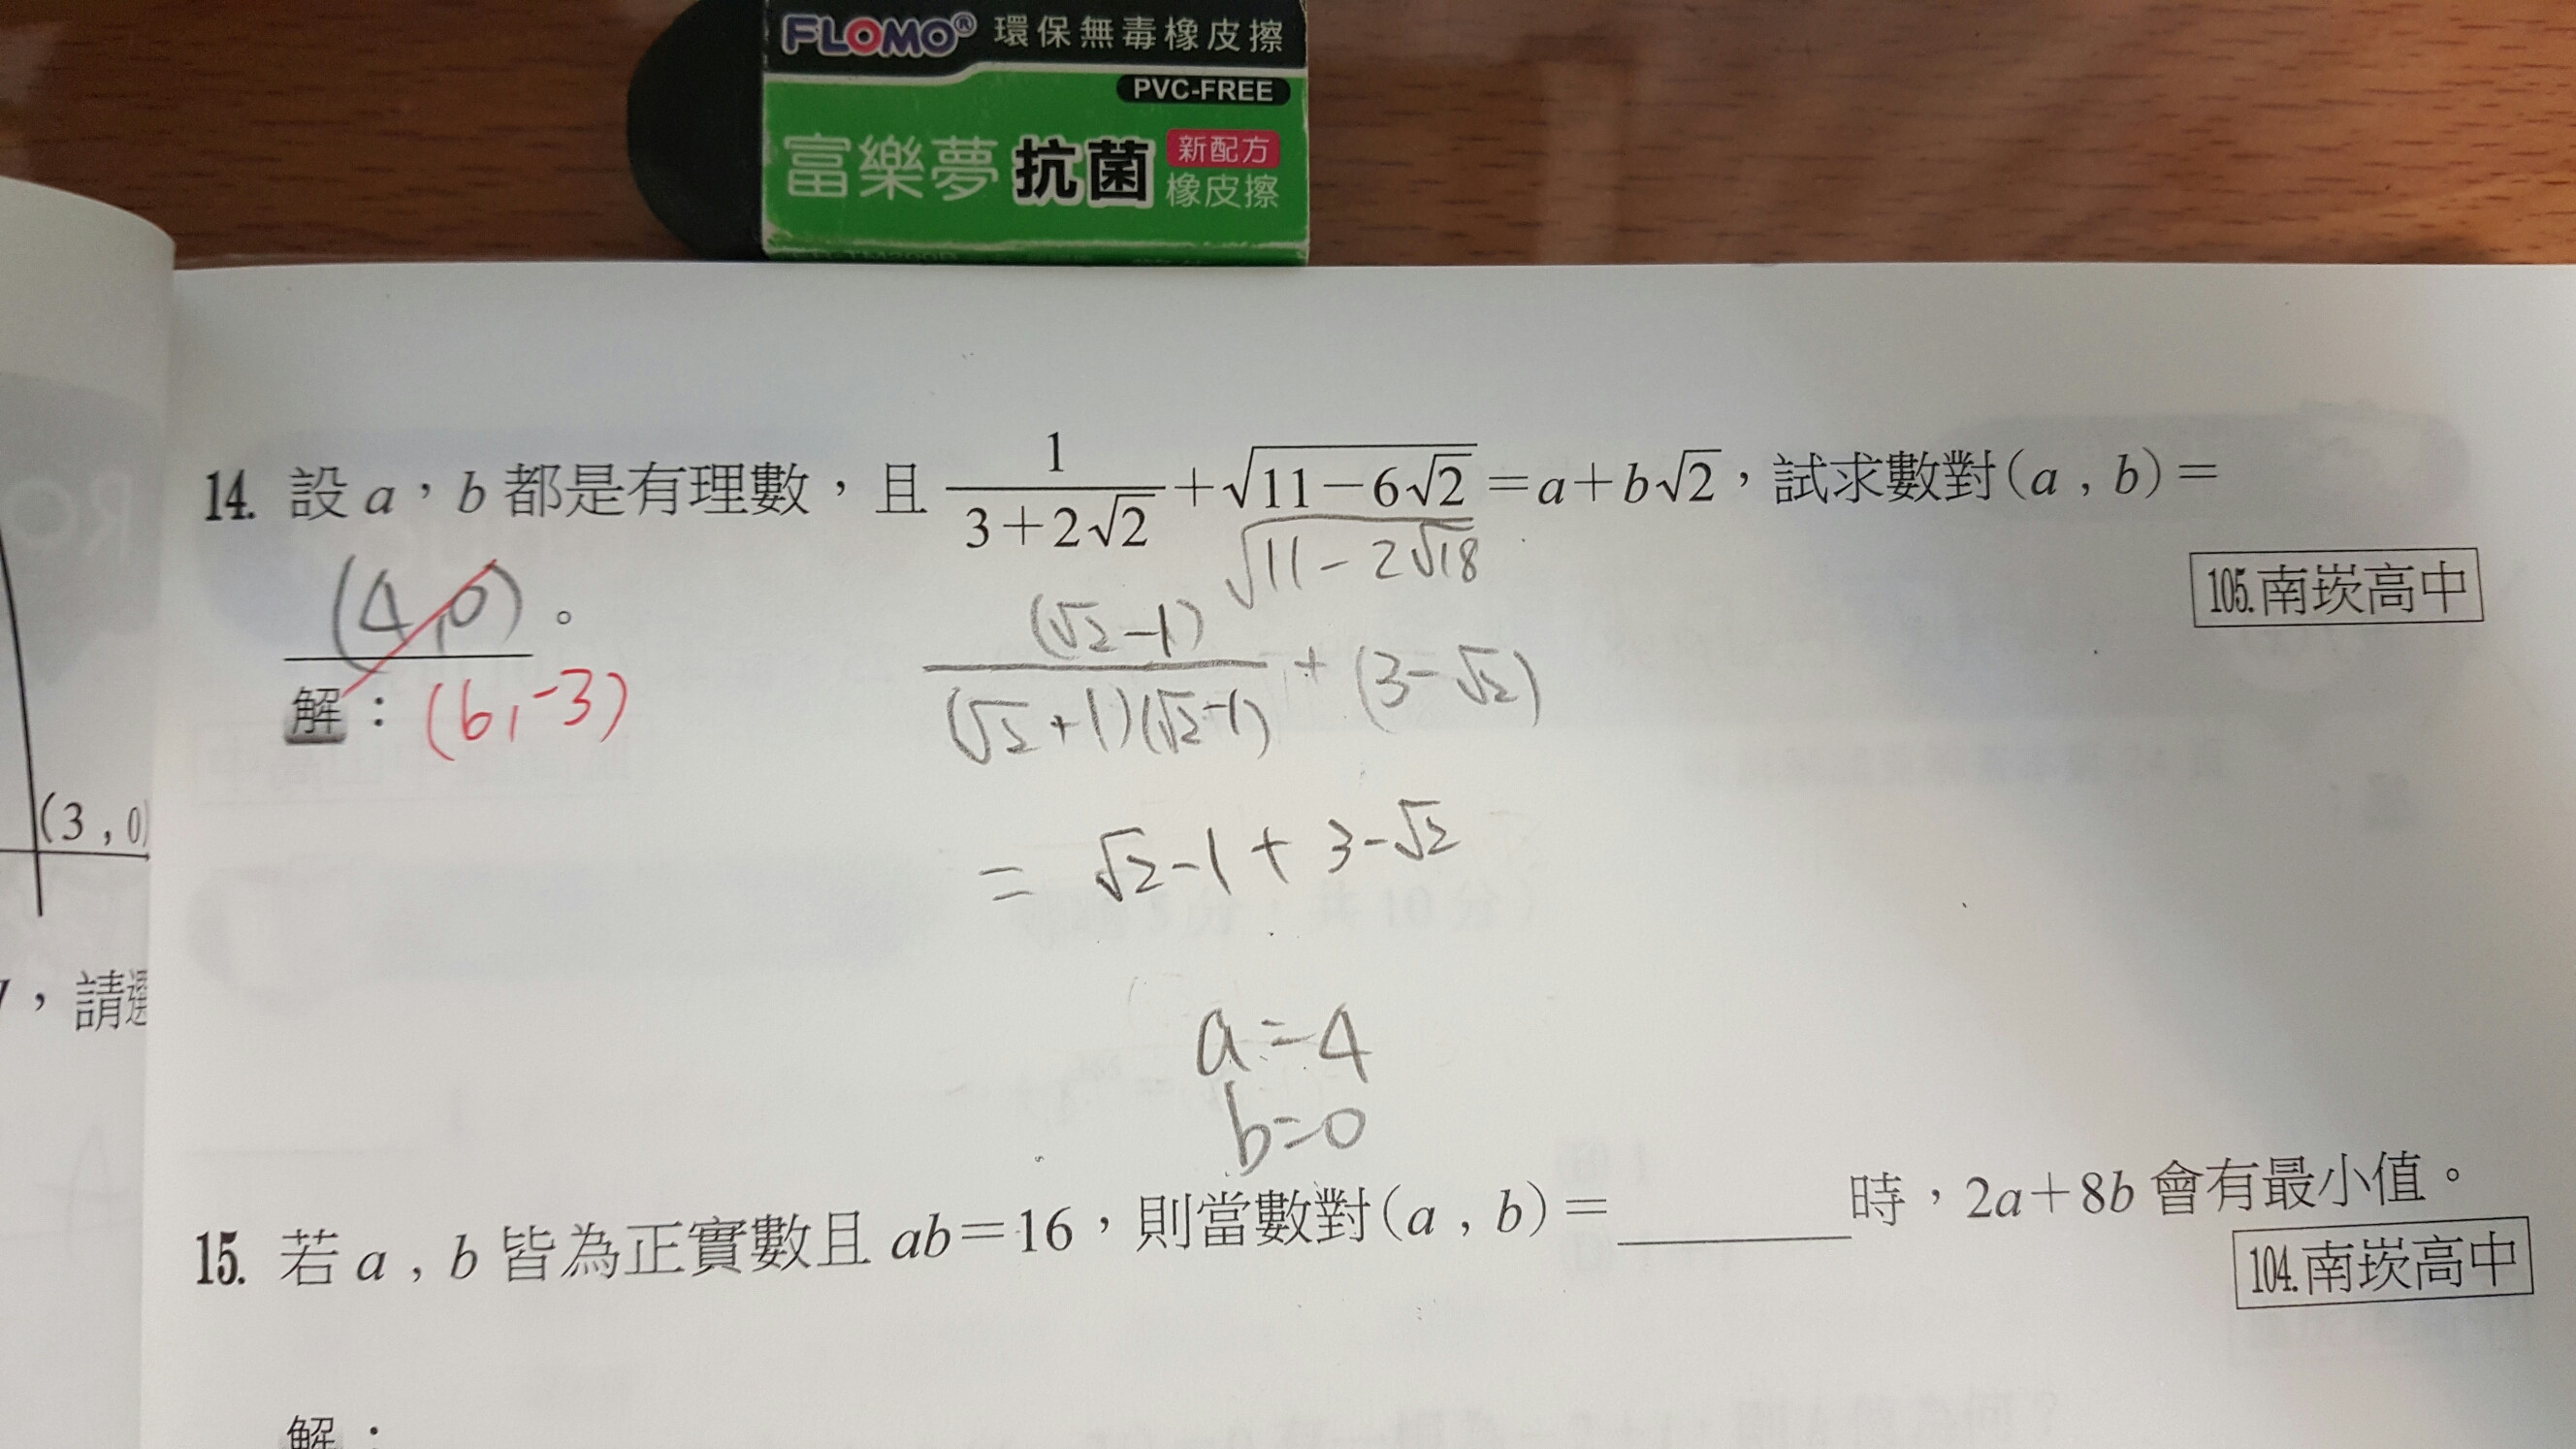 FLOMO® 環保無毒橡皮擦
PVC-FREE
富樂夢 抗菌 新配方
橡皮擦
14. 設 a，b 都是有理數，且 1/(3+2√2) + √(11−6√2) = a+b√2，試求數對(a , b)=
√(11−2√18)
105.南崁高中
(4,0)。
(√2−1)/((√2+1)(√2−1)) + (3−√2)
解：(6,-3)
= √2−1+3−√2
(3 , 0)
，請選
a=4
b=0
15. 若 a , b 皆為正實數且 ab=16，則當數對(a , b)=________時，2a+8b 會有最小值。
104.南崁高中
解：